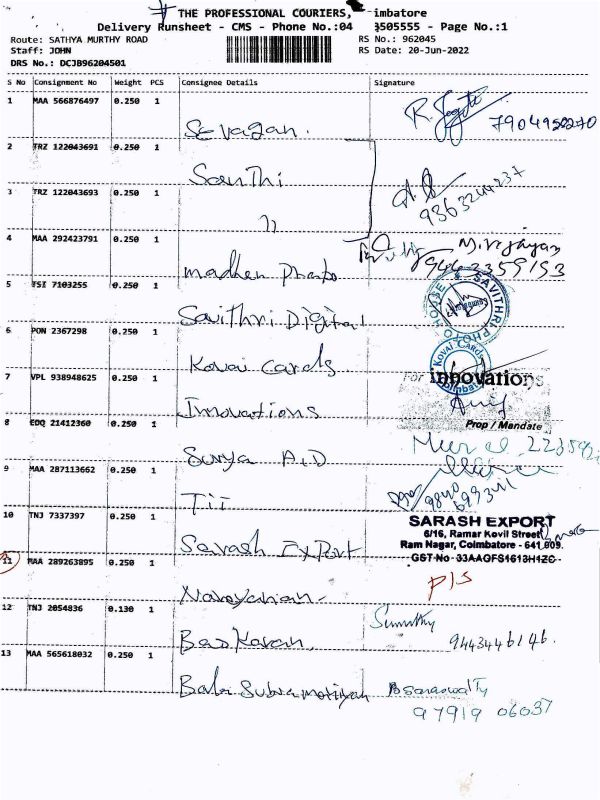 THE PROFESSIONAL COURIERS, imbatore
Delivery Runsheet - CMS - Phone No.:04 3505555 - Page No.:1
Route: SATHYA MURTHY ROAD
RS No.: 962045
Staff: JOHN
RS Date: 20-Jun-2022
DRS No.: DCJB96204501
S No Consignment No Weight PCS Consignee Details Signature
1 MAA 566876497 0.250 1
Sevagan.
7904950270
2 TRZ 122043691 0.250 1
Santhi
9363204237
3 TRZ 122043693 0.250 1
"
4 MAA 292423791 0.250 1
M. Vijayan
9442359153
madhan Photo
5 TSI 7103255 0.250 1
SAVITHRI PHOTO HOUSE
Coimbatore
Savithri Digital
6 PON 2367298 0.250 1
Kovai Cards
Coimbatore
Kovai Cards
7 VPL 938948625 0.250 1
For innovations
Innovations
Prop / Mandate
8 EDQ 21412360 0.250 1
Surya A.D
9 MAA 287113662 0.250 1
TII
10 TNJ 7337397 0.250 1
SARASH EXPORT
6/16, Ramar Kovil Street,
Ram Nagar, Coimbatore - 641 009.
GST No 33AAGFS1613H1ZC
Sarash Export
11 MAA 289263895 0.250 1
P/S
Narayanan
12 TNJ 2054836 0.130 1
Sumathy
9443446146.
Baskaran
13 MAA 565618032 0.250 1
Bala Subramaniyan
B Saraswathy
97919 06037